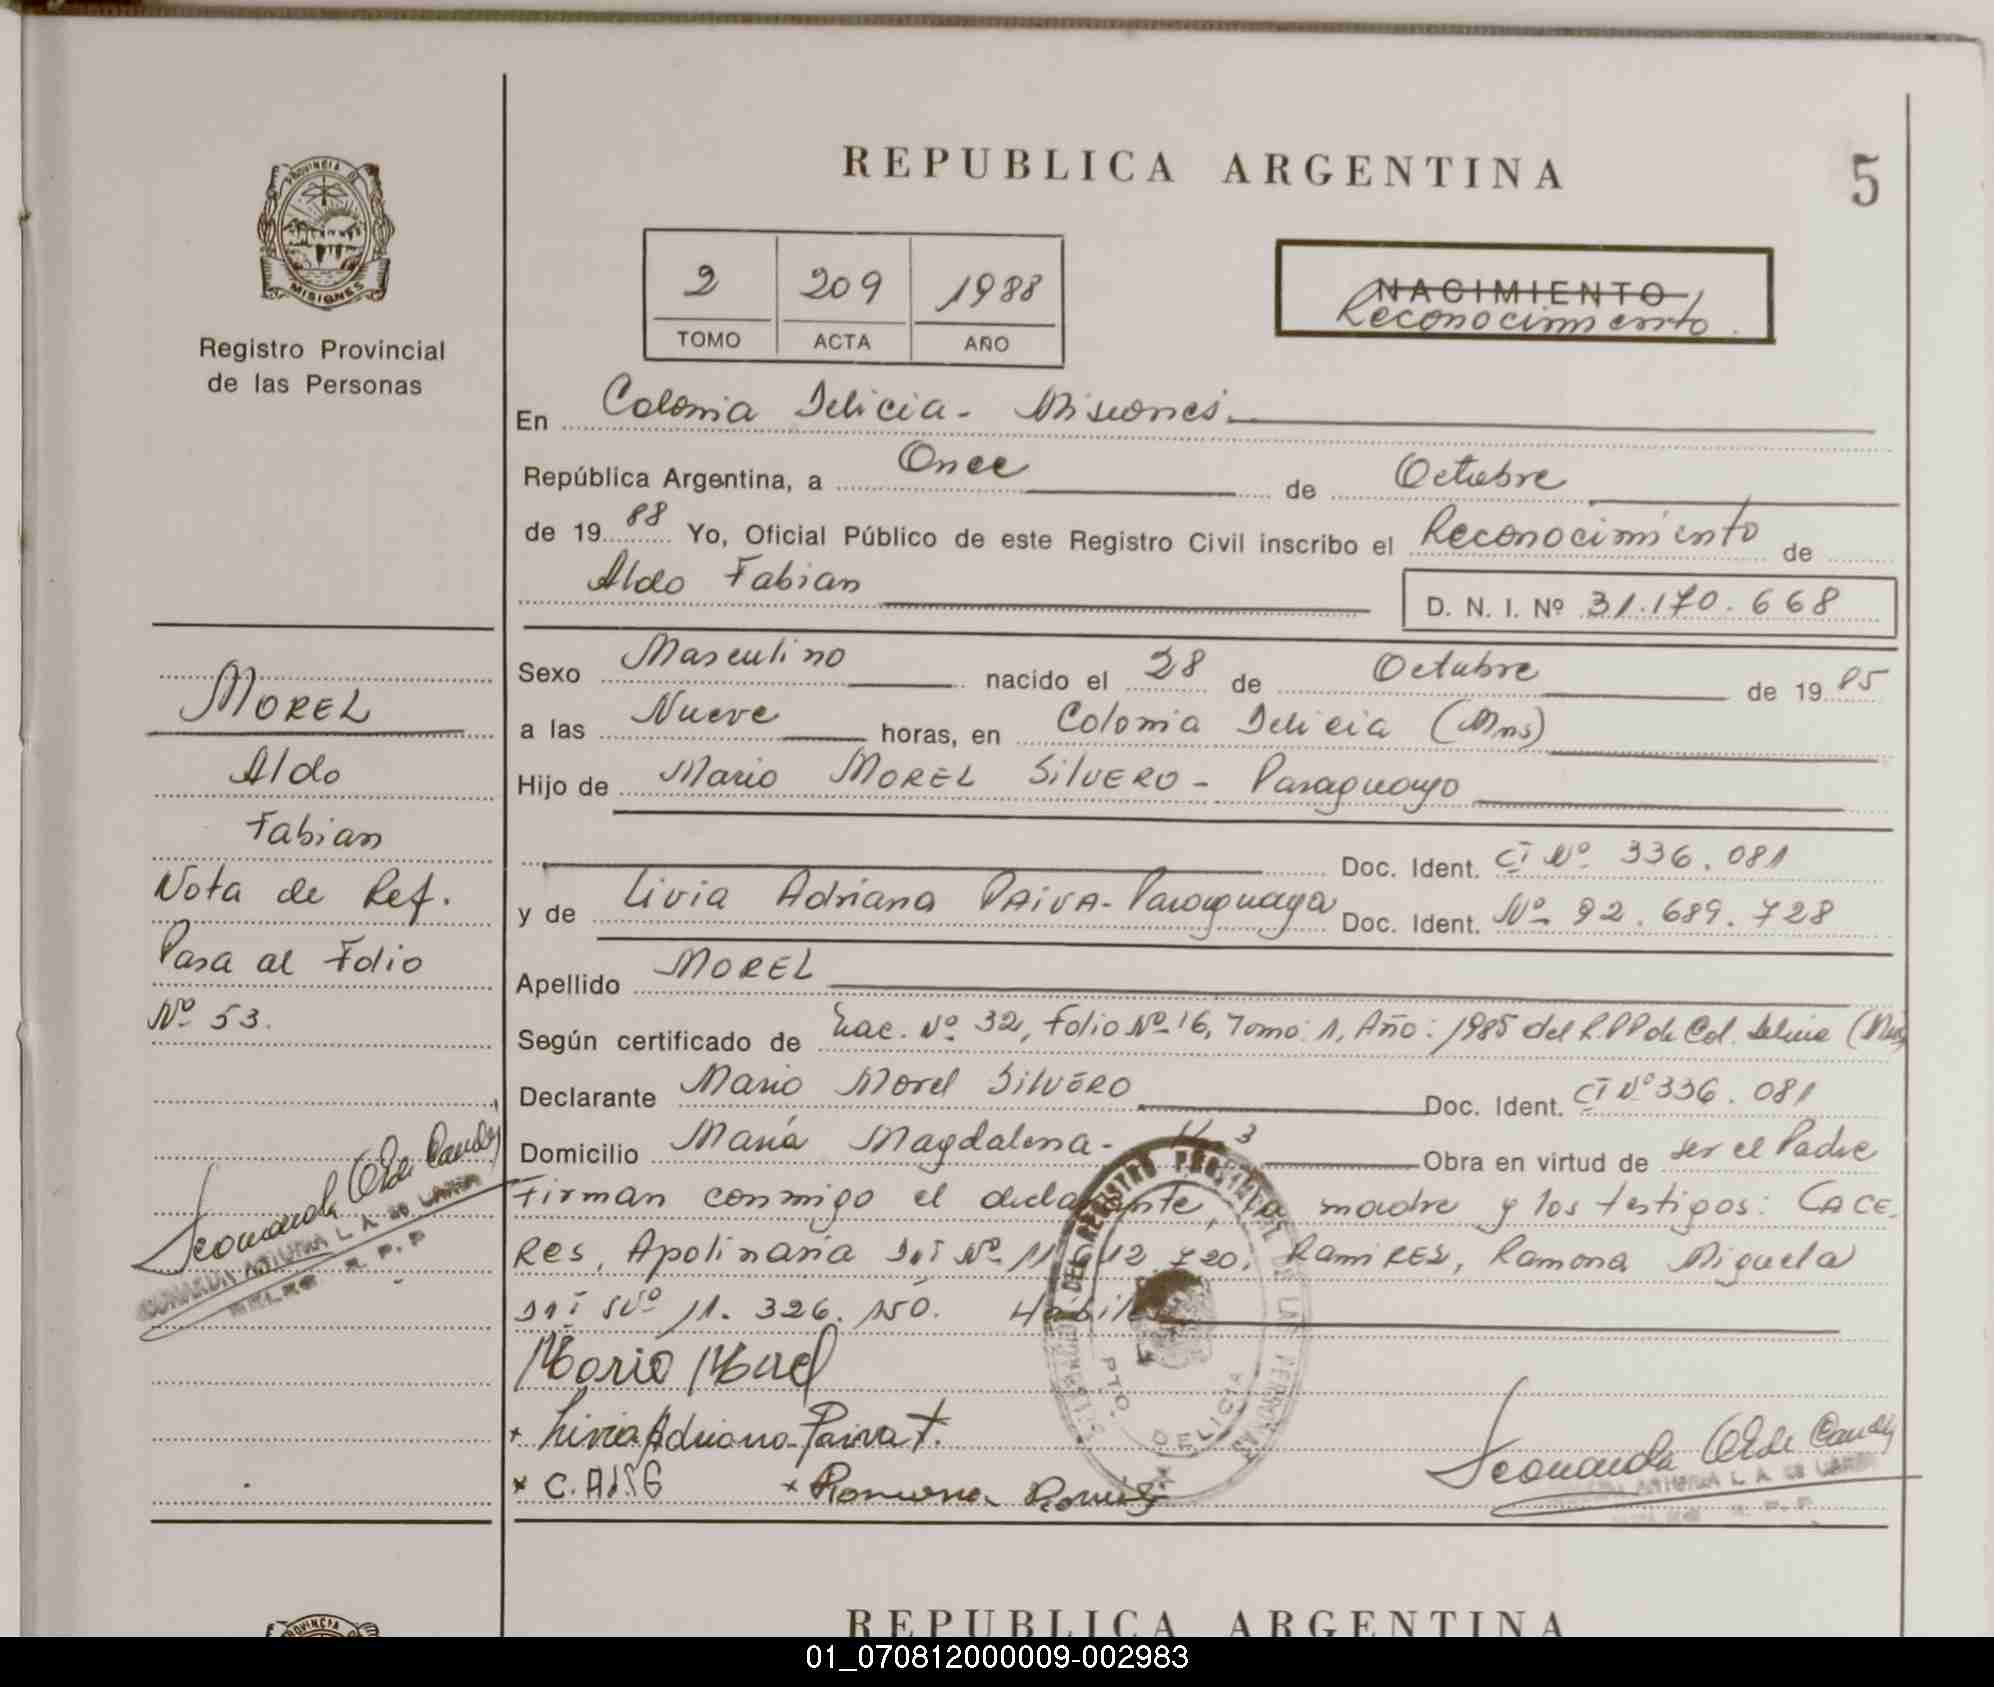 REPUBLICA ARGENTINA
5
PROVINCIA DE
MISIONES
Registro Provincial
de las Personas
2 209 1988
TOMO ACTA AÑO
NACIMIENTO
Reconocimiento.
En Colonia Delicia - Misiones.
República Argentina, a Once de Octubre
de 1988 Yo, Oficial Público de este Registro Civil inscribo el Reconocimiento de
Aldo Fabian
D. N. I. Nº 31.170.668
Sexo Masculino nacido el 28 de Octubre de 1985
a las Nueve horas, en Colonia Delicia (Mns)
Hijo de Mario MOREL SILVERO - Paraguayo
Doc. Ident. CI Nº 336.081
y de Livia Adriana PAIVA - Paraguaya Doc. Ident. Nº 92.689.728
Apellido MOREL
Según certificado de Nac. Nº 32, Folio Nº 16, Tomo: 1, Año: 1985 del R.P.P de Col. Delicia (Mns)
Declarante Mario Morel SILVERO Doc. Ident. CI Nº 336.081
Domicilio María Magdalena - 3 Obra en virtud de ser el Padre
Firman conmigo el declarante, la madre y los testigos: CACE-
RES, Apolinaria DNI Nº 720, RamiRES, Ramona Miguela
DNI Nº 11.326.150.
Mario Morel
x Livia Adriana Paiva
x C. x Ramona
MOREL
Aldo
Fabian
Nota de Ref.
Pasa al Folio
Nº 53.
REGISTRO PROVINCIAL DE LAS PERSONAS
PTO. DELICIA
REPUBLICA ARGENTINA
01_070812000009-002983